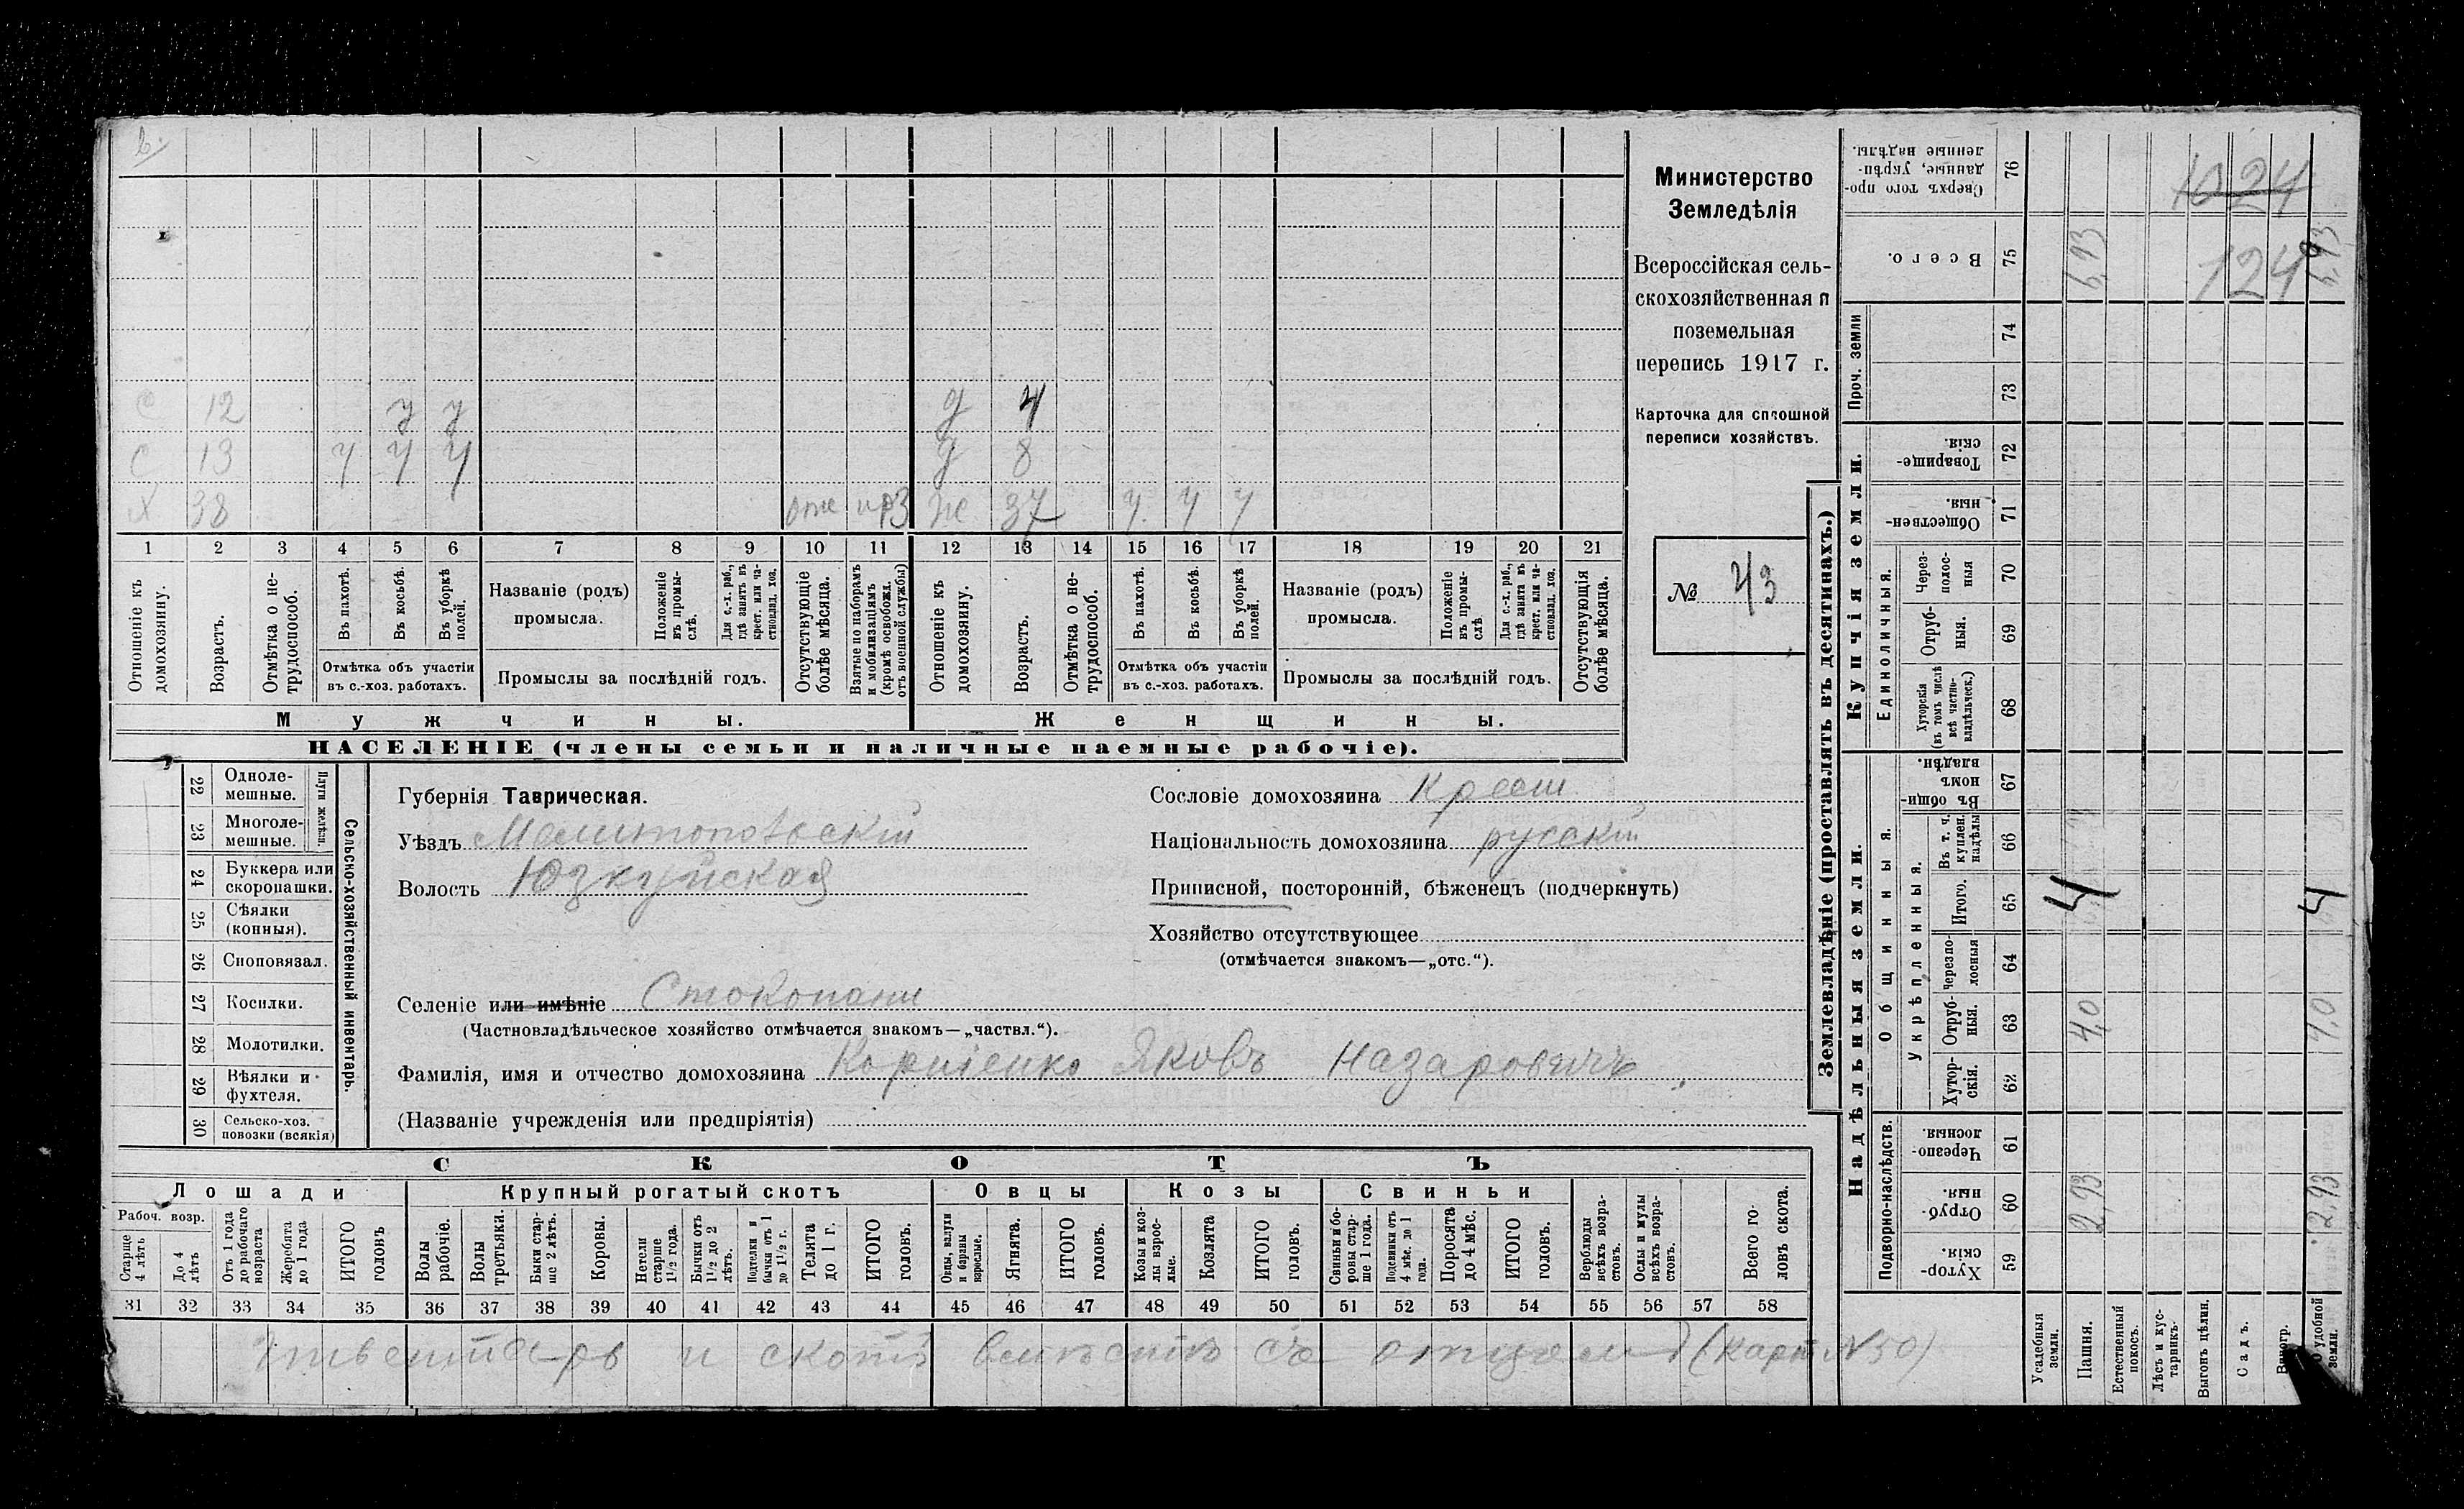 С 12 у у д 4
С 13 у у у д 8
Х 38 отс пр3 ж 37 у у у
1 2 3 4 5 6 7 8 9 10 11 12 13 14 15 16 17 18 19 20 21
Отношеніе къ домохозяину.
Возрастъ.
Отмѣтка о не-трудоспособ.
Въ пахотѣ.
Въ косьбѣ.
Въ уборкѣ полей.
Отмѣтка объ участіи
въ с.-хоз. работахъ.
Названіе (родъ)
промысла.
Положеніе въ промы-слѣ.
Для с.-х. раб., гдѣ занятъ въ крест. или ча-стновлад. хоз.
Промыслы за послѣдній годъ.
Отсутствующіе болѣе мѣсяца.
Взятые по наборамъ и мобилизаціямъ (кромѣ освобожд. отъ военной службы)
Отношеніе къ домохозяину.
Возрастъ.
Отмѣтка о не-трудоспособ.
Въ пахотѣ.
Въ косьбѣ.
Въ уборкѣ полей.
Отмѣтка объ участіи
въ с.-хоз. работахъ.
Названіе (родъ)
промысла.
Положеніе въ промы-слѣ.
Для с.-х. раб., гдѣ занята въ крест. или ча-стновлад. хоз.
Промыслы за послѣдній годъ.
Отсутствующія болѣе мѣсяца.
Мужчины.
Женщины.
НАСЕЛЕНІЕ (члены семьи и наличные наемные рабочіе).
Министерство
Земледѣлія
Всероссійская сель-
скохозяйственная и
поземельная
перепись 1917 г.
Карточка для сплошной
переписи хозяйствъ.
№ 43
22 Одноле-мешные.
23 Многоле-мешные.
Плуги желѣзн.
24 Буккера или скоропашки.
25 Сѣялки (конныя).
26 Сноповязал.
27 Косилки.
28 Молотилки.
29 Вѣялки и фухтеля.
30 Сельско-хоз. повозки (всякія)
Сельско-хозяйственный инвентарь.
Губернія Таврическая.
Уѣздъ Мелитопольскій
Волость Юзкуйская
Сословіе домохозяина Крест
Національность домохозяина русскій
Приписной, посторонній, бѣженецъ (подчеркнуть)
Хозяйство отсутствующее
(отмѣчается знакомъ—„отс.“).
Селеніе или имѣніе Стокопани
(Частновладѣльческое хозяйство отмѣчается знакомъ—„частвл.“).
Фамилія, имя и отчество домохозяина Корніенко Яковъ Назаровичъ
(Названіе учрежденія или предпріятія)
СКОТЪ
Лошади
Рабоч. возр.
Старше 4 лѣтъ
До 4 лѣтъ
Отъ 1 года до рабочаго возраста
Жеребята до 1 года
ИТОГО головъ
Крупный рогатый скотъ
Волы рабочіе.
Волы третьяки.
Быки стар-ше 2 лѣтъ.
Коровы.
Нетели старше 1½ года.
Бычки отъ 1½ до 2 лѣтъ.
Подтелки и бычки отъ 1 до 1½ г.
Телята до 1 г.
ИТОГО головъ.
Овцы
Овцы, валухи и бараны взрослые.
Ягнята.
ИТОГО головъ.
Козы
Козы и коз-лы взрос-лые.
Козлята
ИТОГО головъ.
Свиньи
Свиньи и бо-ровы стар-ше 1 года.
Подсвинки отъ 4 мѣс. до 1 года.
Поросята до 4 мѣс.
ИТОГО головъ.
Верблюды всѣхъ возра-стовъ.
Ослы и мулы всѣхъ возра-стовъ.
Всего го-ловъ скота.
31 32 33 34 35 36 37 38 39 40 41 42 43 44 45 46 47 48 49 50 51 52 53 54 55 56 57 58
Инвентарь и скотъ вмѣстѣ съ отцемъ (карт №50)
Землевладѣніе (проставлять въ десятинахъ.)
Сверхъ того про-данные, укрѣп-ленные надѣлы. 76
1024
Всего. 75 6,93 6,93
124
Проч. земли 74
73
Купчія земли.
Товарище-скія. 72
Обществен-ныя. 71
Единоличныя.
Через-полос-ныя 70
Отруб-ныя. 69
Хуторскія (въ томъ числѣ всѣ частно-владѣльческ.) 68
Надѣльныя земли.
Общинныя.
Въ общи-номъ владѣн. 67
Укрѣпленныя.
Въ т. ч. куплен. надѣлы 66
Итого. 65 4 4
Черезпо-лосныя 64
Отруб-ныя. 63 4,0 4,0
Хутор-скія. 62
Подворно-наслѣдств.
Черезпо-лосныя. 61
Отруб-ныя. 60 2,93 2,93
Хутор-скія. 59
Усадебныя земли.
Пашня.
Естественный покосъ.
Лѣсъ и кус-тарникъ.
Выгонъ цѣлин.
Садъ.
удобной земли.